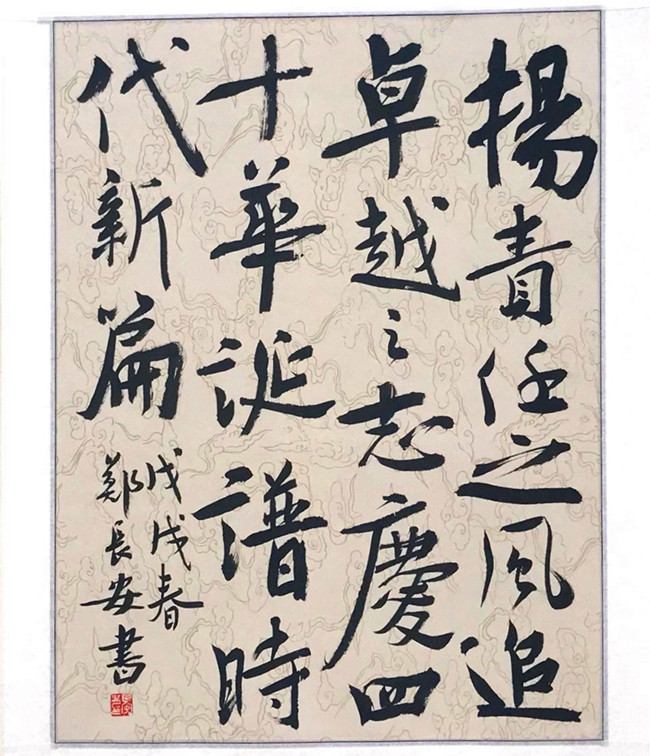 揚責任之風追
卓越之志慶四
十華誕譜時
代新篇
戊戌春
鄭長安書